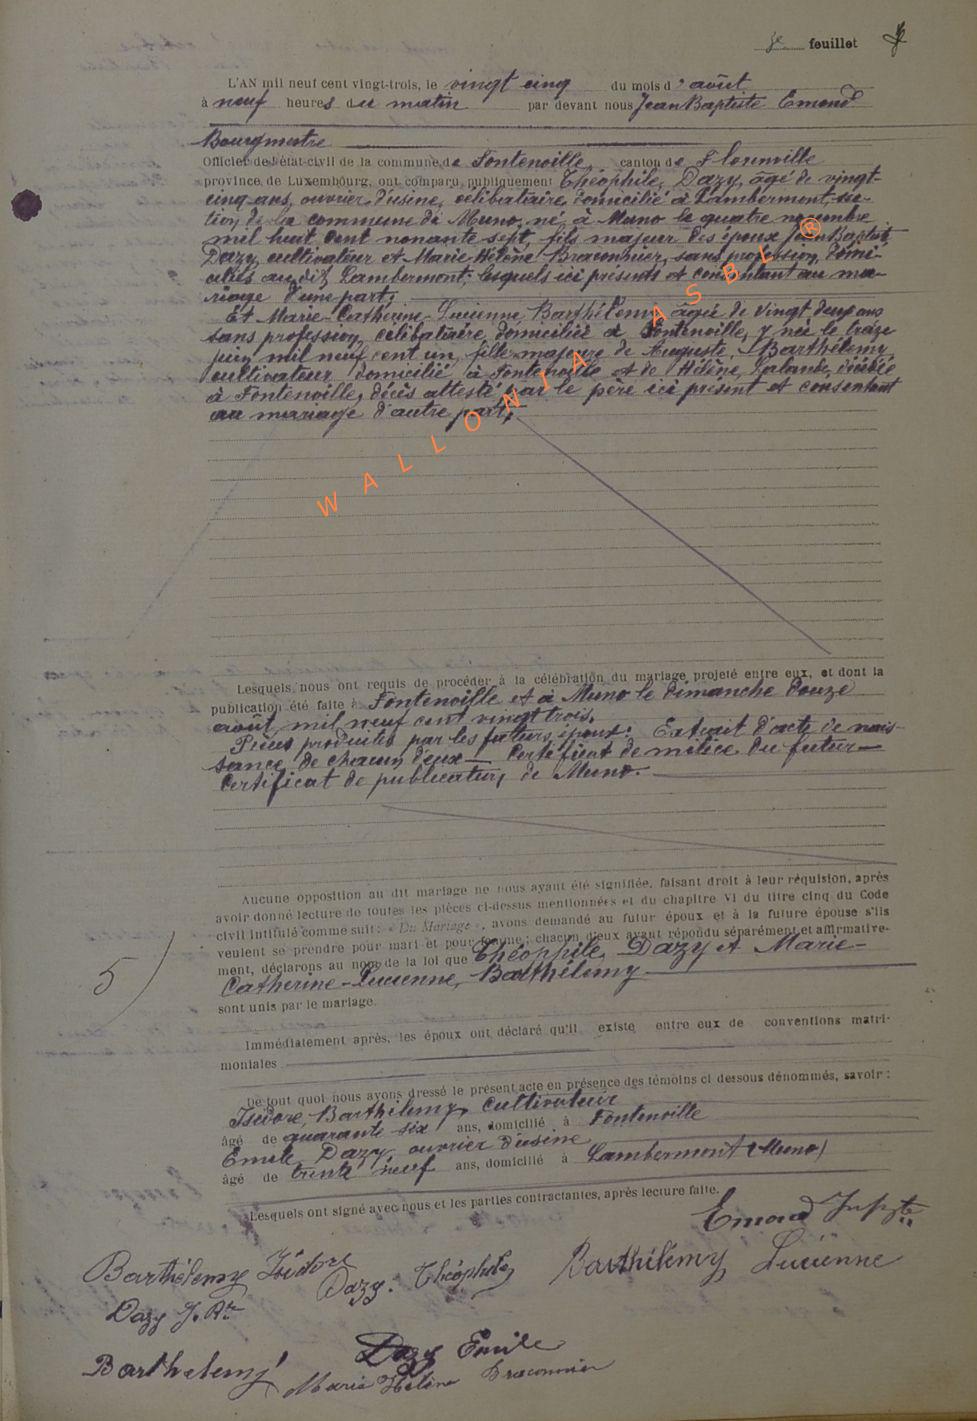 3e feuillet
L'AN mil neuf cent vingt-trois, le vingt cinq du mois d'août
à neuf heures du matin par devant nous Jean Baptiste Emond
Bourgmestre
Officier de l'état-civil de la commune de Fontenoille, canton de Florenville
province de Luxembourg, ont comparu publiquement Théophile, Dazy, âgé de vingt-
cinq ans, ouvrier d'usine, célibataire, domicilié à Lambermont, sec-
tion de la commune de Muno, né à Muno le quatre novembre
mil huit cent nonante sept, fils majeur des époux Jean Baptist
Dazy, cultivateur et Marie Hélène Braconnier, sans profession, domi-
ciliés au dit Lambermont, lesquels ici présents et consentant au ma-
riage d'une part;
Et Marie-Catherine-Lucienne, Barthélemy, âgée de vingt deux ans
sans profession, célibataire, domiciliée à Fontenoille, y née le treize
juin mil neuf cent un, fille majeure de Auguste, Barthélemy,
cultivateur domicilié à Fontenoille et de Hélène, Lalande, décédée
à Fontenoille, décès attesté par le père ici présent et consentant
au mariage d'autre part;
WALLONIA ASBL ®
Lesquels nous ont requis de procéder à la célébration du mariage projeté entre eux, et dont la
publication été faite à Fontenoille et à Muno le dimanche douze
août, mil neuf cent vingt trois.
Pièces produites par les futurs époux: Extrait d'acte de nais-
sance de chacun d'eux — Certificat de milice du futur —
Certificat de publication, de Muno. —
Aucune opposition au dit mariage ne nous ayant été signifiée, faisant droit à leur réquision, après
avoir donné lecture de toutes les pièces ci-dessus mentionnées et du chapitre VI du titre cinq du Code
civil intitulé comme suit: « Du Mariage », avons demandé au futur époux et à la future épouse s'ils
veulent se prendre pour mari et pour femme; chacun d'eux ayant répondu séparément et affirmative-
ment, déclarons au nom de la loi que Théophile, Dazy et Marie-
Catherine-Lucienne, Barthélemy
sont unis par le mariage.
5)
Immédiatement après, les époux ont déclaré qu'il existe entre eux de conventions matri-
moniales
De tout quoi nous avons dressé le présent acte en présence des témoins ci dessous dénommés, savoir:
Isidore, Barthélemy, cultivateur
âgé de quarante six ans, domicilié à Fontenoille
Emile, Dazy, ouvrier d'usine
âgé de trente neuf ans, domicilié à Lambermont (Muno)
Lesquels ont signé avec nous et les parties contractantes, après lecture faite.
Emond
Barthélemy Isidore Dazy. Théophile, Barthélémy Lucienne
Dazy J. Bte
Dazy Emile
Barthelemy Marie Hélène Braconnier